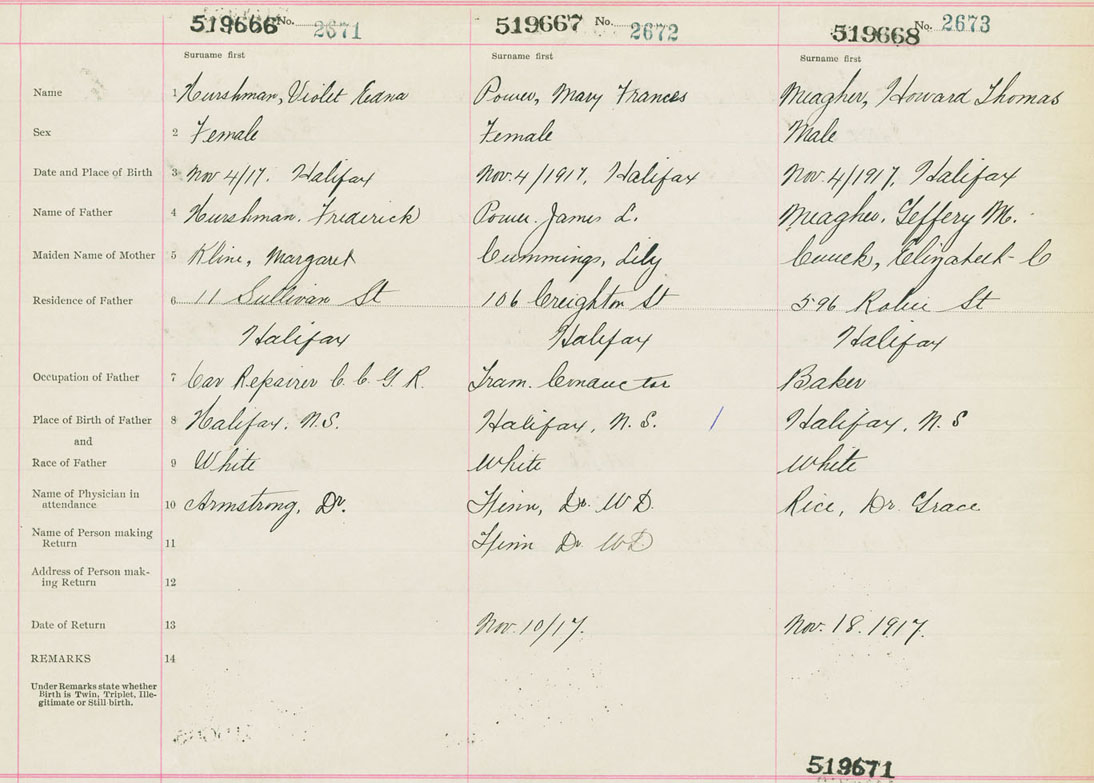 519666 No. 2671 519667 No. 2672 519668 No. 2673
Surname first Surname first Surname first
Name 1 Hurshman, Violet Edna Power, Mary Frances Meagher, Howard Thomas
Sex 2 Female Female Male
Date and Place of Birth 3 Nov 4/17. Halifax Nov. 4/1917, Halifax Nov. 4/1917, Halifax
Name of Father 4 Hurshman. Frederick Power. James L. Meagher. Geffery M.
Maiden Name of Mother 5 Kline, Margaret Cummings, Lily Elizabeth C
Residence of Father 6 11 Sullivan St 106 Creighton St 596 Robie St
Halifax Halifax Halifax
Occupation of Father 7 Car Repairer C. C. G. R. Tram. Conductor Baker
Place of Birth of Father 8 Halifax. N.S. Halifax, N. S. Halifax, N. S
and
Race of Father 9 White White White
Name of Physician in
attendance 10 Armstrong, Dr. Finn, Dr. W D. Rice, Dr. Grace
Name of Person making
Return 11 Finn Dr. W D
Address of Person mak-
ing Return 12
Date of Return 13 Nov. 10/17. Nov. 18. 1917.
REMARKS 14
Under Remarks state whether
Birth is Twin, Triplet, Ille-
gitimate or Still-birth.
519671